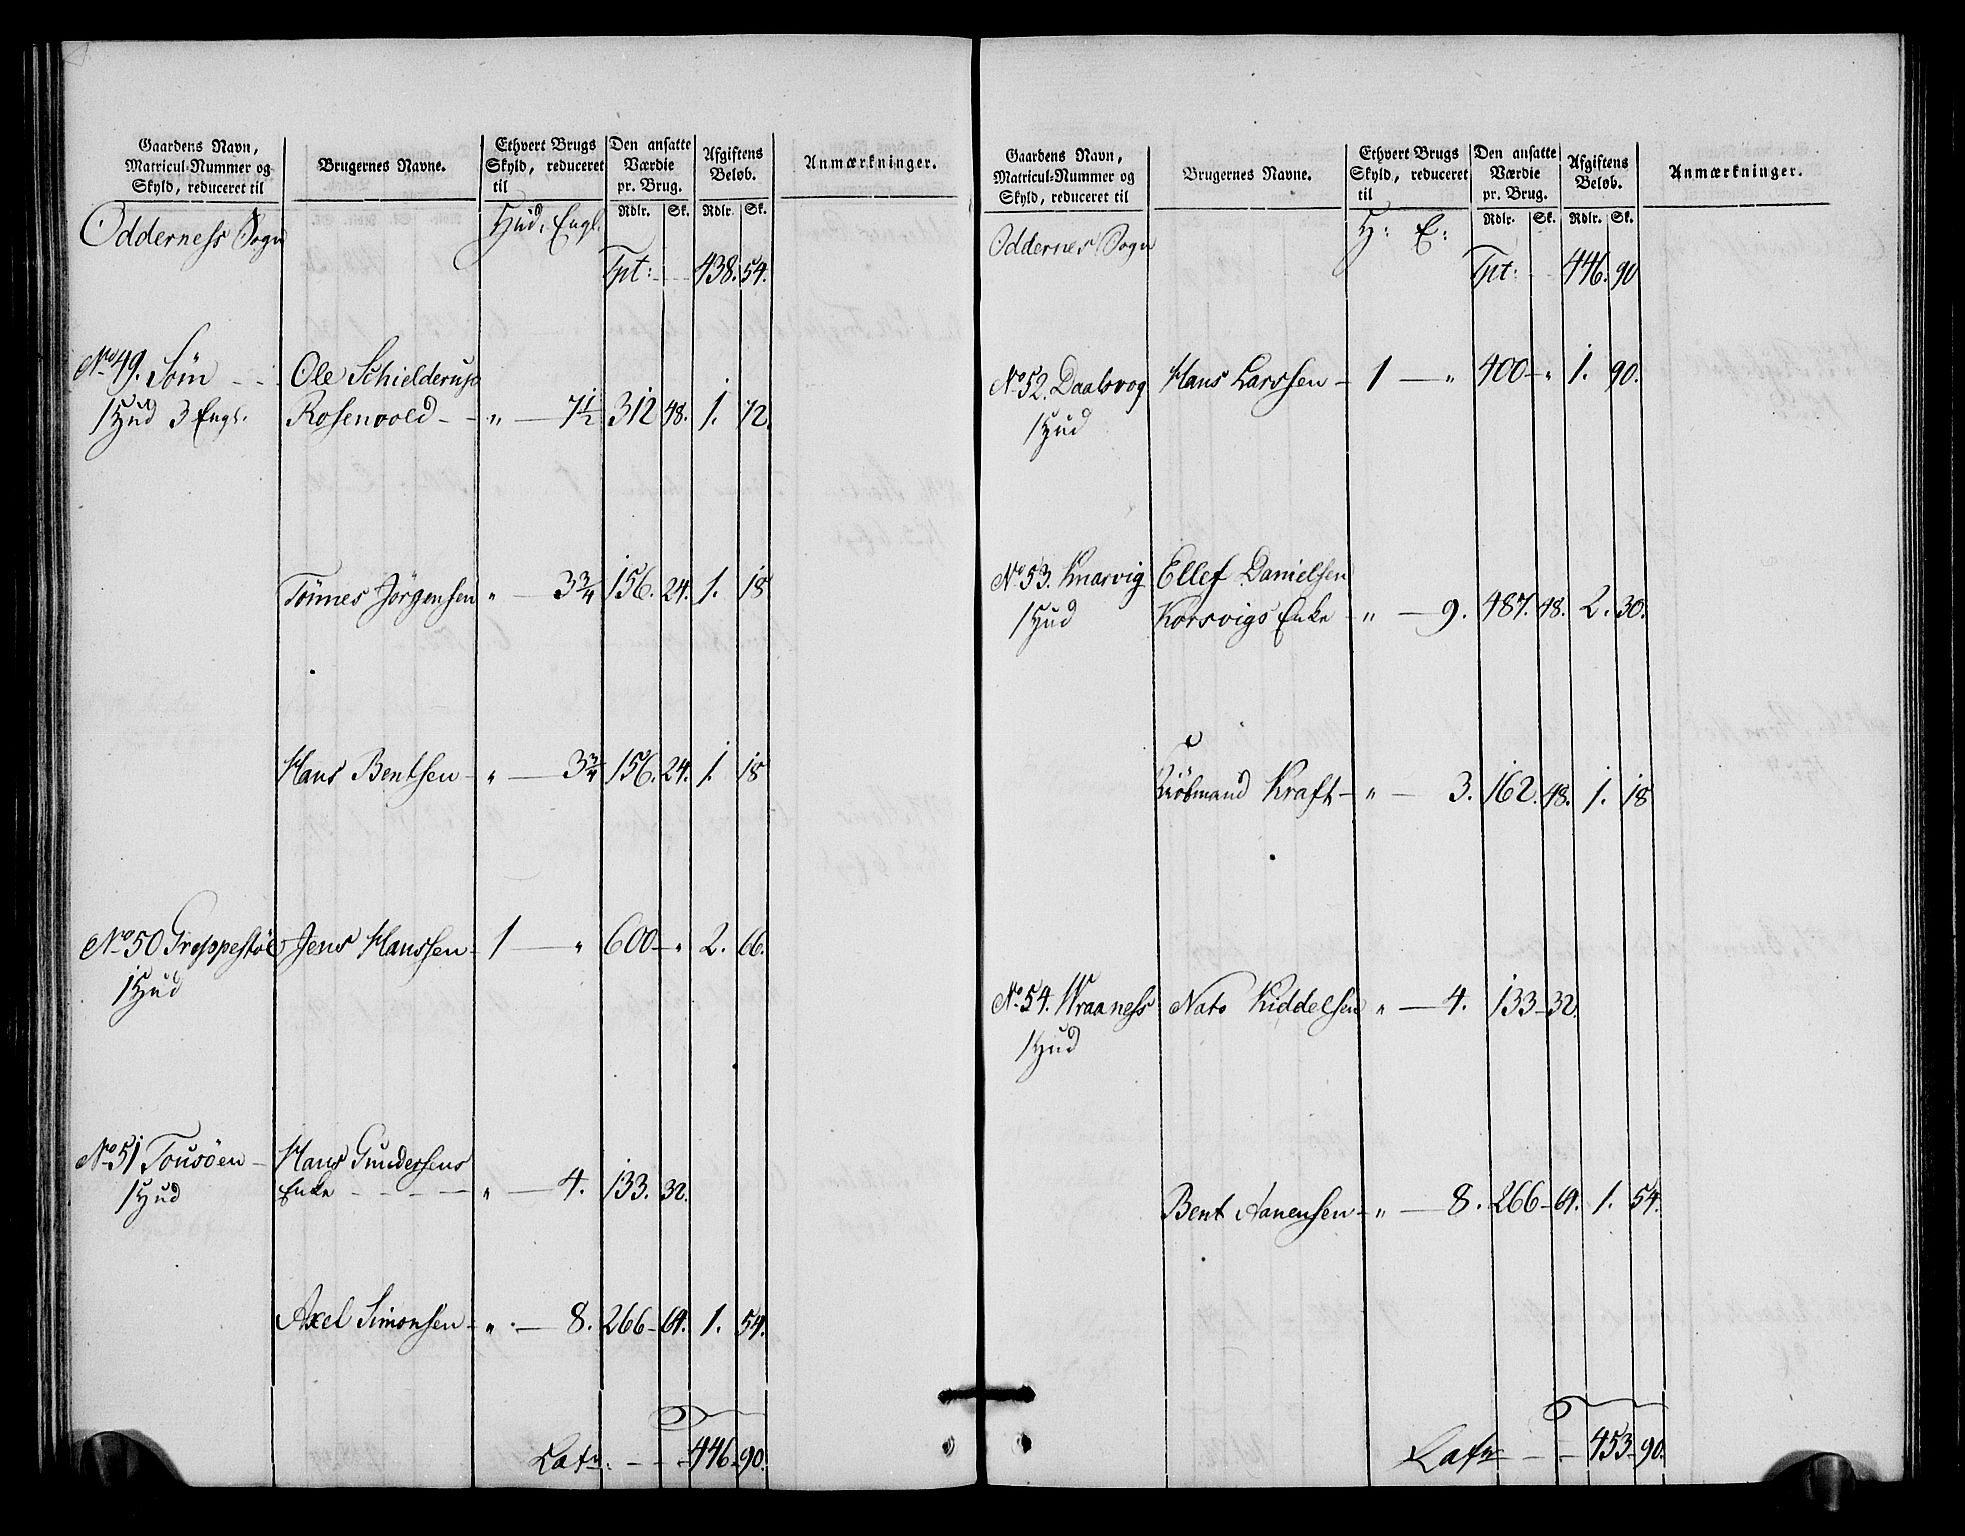 Gaardens Navn,
Matricul-Nummer og
Skyld, reduceret til
Brugernes Navne.
Ethvert Brugs
Skyld, reduceret
til
Den ansatte
Værdie
pr. Brug.
Afgiftens
Beløb.
Anmærkninger.
Rdlr. Sk. Rdlr. Sk.
Odderness Sogn Hud. Engl.
Tpt: 438. 54.
No 49. Söm Ole Schielderup
1 Hud 3 Engl. Rosenvold " 7½ 312 48. 1. 72.
Tönnes Jörgensen " 3¾ 156. 24. 1. 18
Hans Bentsen " 3¾ 156. 24. 1. 18
No 50 Greppestöl Jens Hanssen 1 " 600 " 2. 66.
1 Hud
No 51 Tousöen Hans Gundersens
1 Hud Enke " 4. 133. 32.
Axel Simonsen " 8. 266 64. 1. 54.
Latr: 446 90.
Gaardens Navn,
Matricul-Nummer og
Skyld, reduceret til
Brugernes Navne.
Ethvert Brugs
Skyld, reduceret
til
Den ansatte
Værdie
pr. Brug.
Afgiftens
Beløb.
Anmærkninger.
Rdlr. Sk. Rdlr. Sk.
Oddernes Sogn H: E:
Tpt: 446. 90
No 52. Daalsvog Hans Larssen 1 " 400 " 1. 90.
1 Hud
No 53. Knarvig Ellef Danielsen
1 Hud Korsvigs Enke " 9. 487. 48. 2. 30.
Kiöbmand Kraft " 3. 162. 48. 1. 18
No 54. Wraaness Nats Kiddelsen " 4. 133 32.
1 Hud
Bent Aanensen " 8. 266 64. 1. 54.
Latr 453 90.